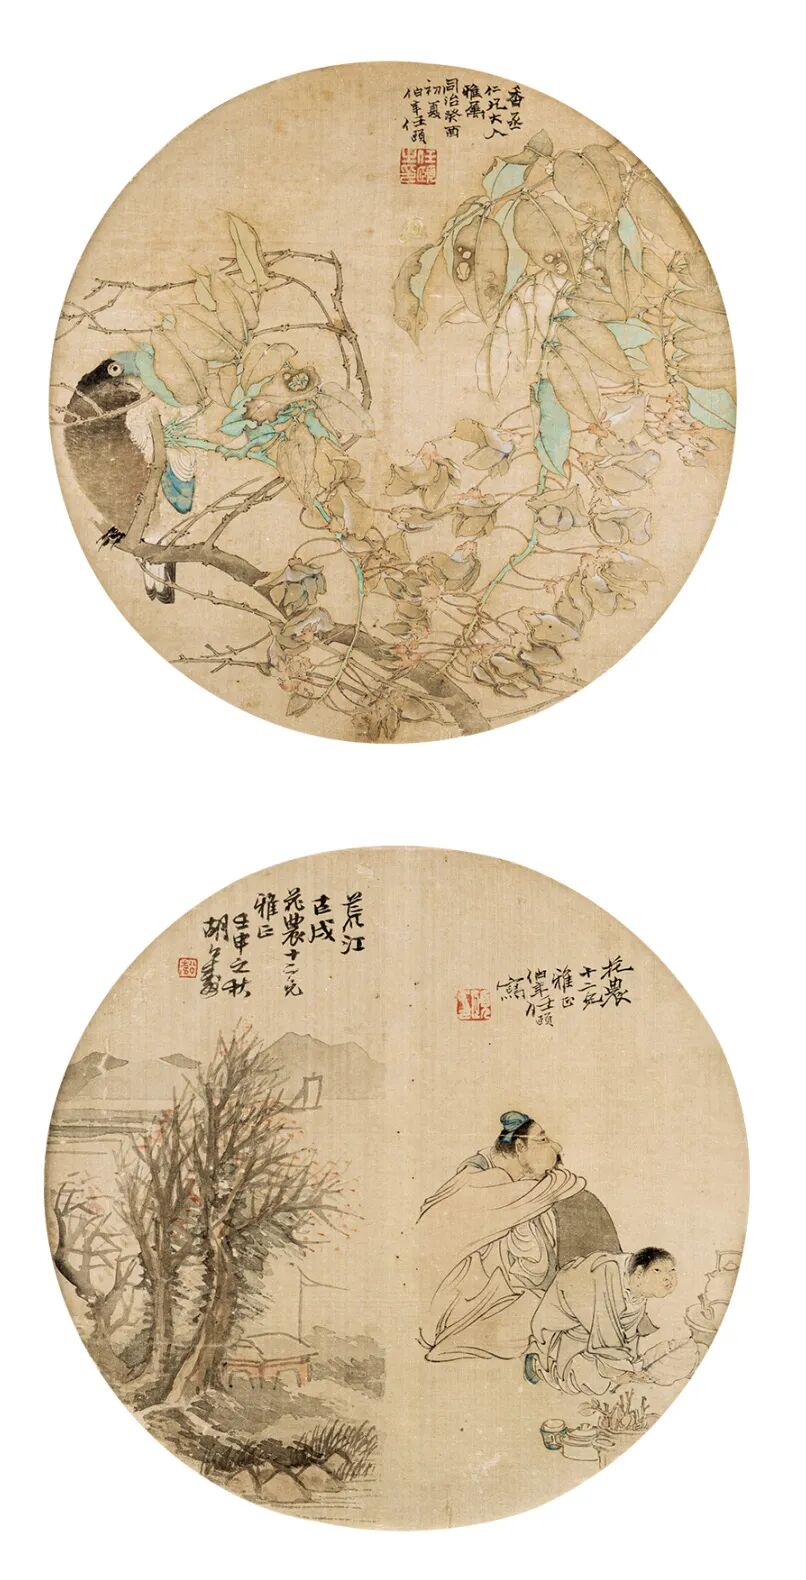 香丞
仁兄大人
雅属
同治癸酉
初夏
伯年任頤
任頤
荒江
古戍
花農十二兄
雅正
壬申之秋
胡公壽
花農
十二兄
雅正
伯年任頤
寫